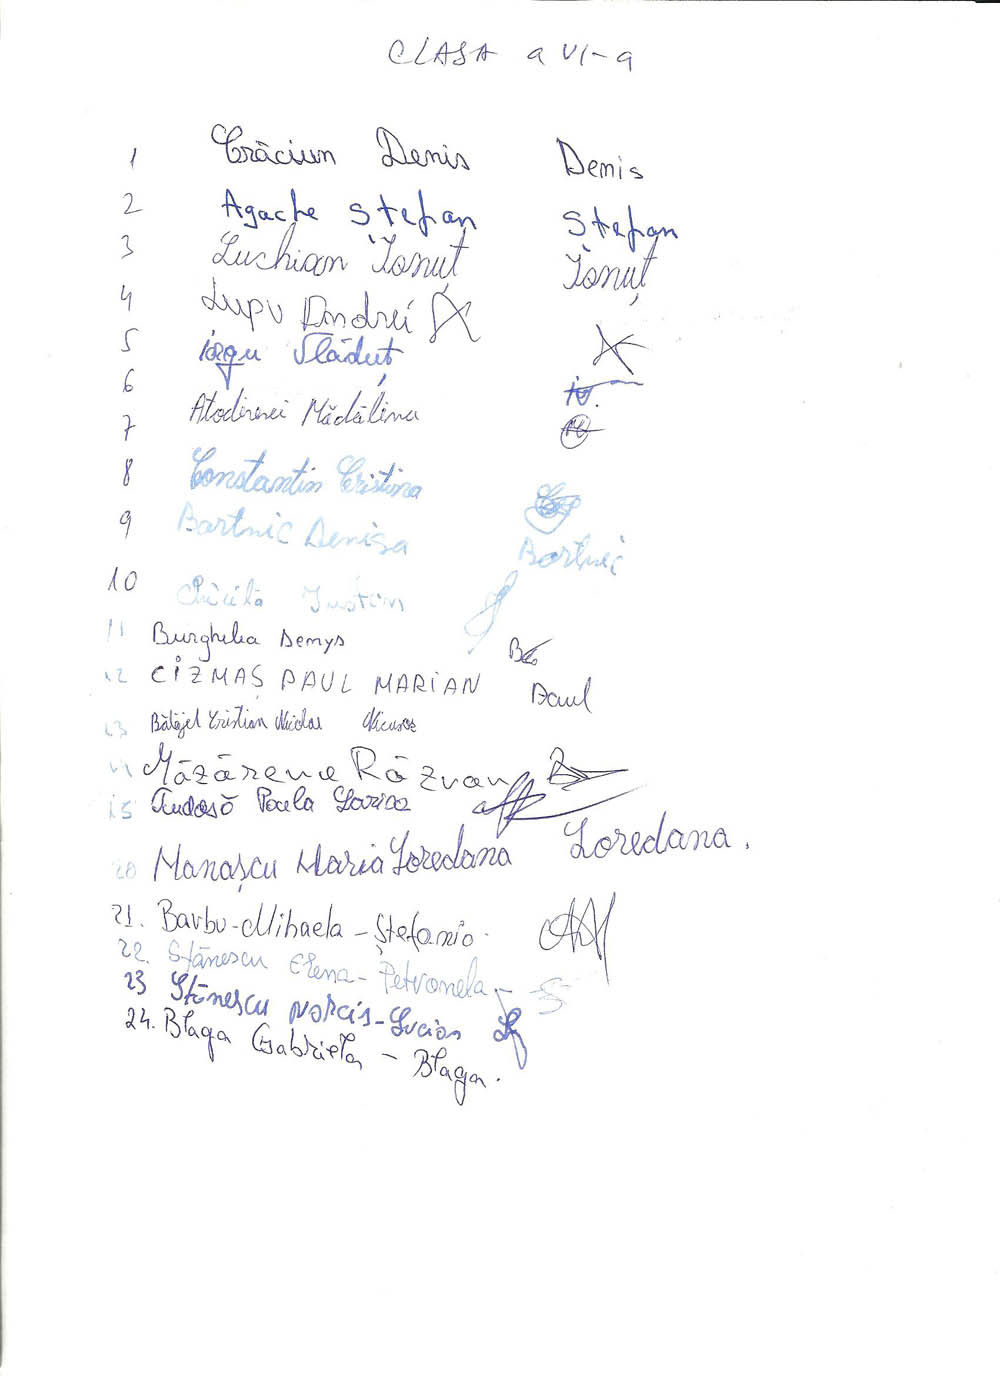 CLASA a VI-a
1 Crăciun Denis Denis
2 Agache Stefan Stefan
3 Luchian Ionuț Ionuț
4 Lupu Andrei
5 iorgu Vlăduț
6
7 Atodiresei Mădălina
8 Constantin Cristina
9 Bartnic Denisa Bartnic
10 Chirilă Iustin
11 Burghelea Demys
12 CIZMAȘ PAUL MARIAN Paul
13 Cristian Nicolae
14 Măzăreanu Răzvan
15 Paula Larisa
20 Manașcu Maria Loredana Loredana.
21. Barbu-Mihaela-Ștefania
22. Stănescu Elena-Petronela - S
23 Stănescu Norcis-Lucian
24. Blaga Gabriela - Blaga.